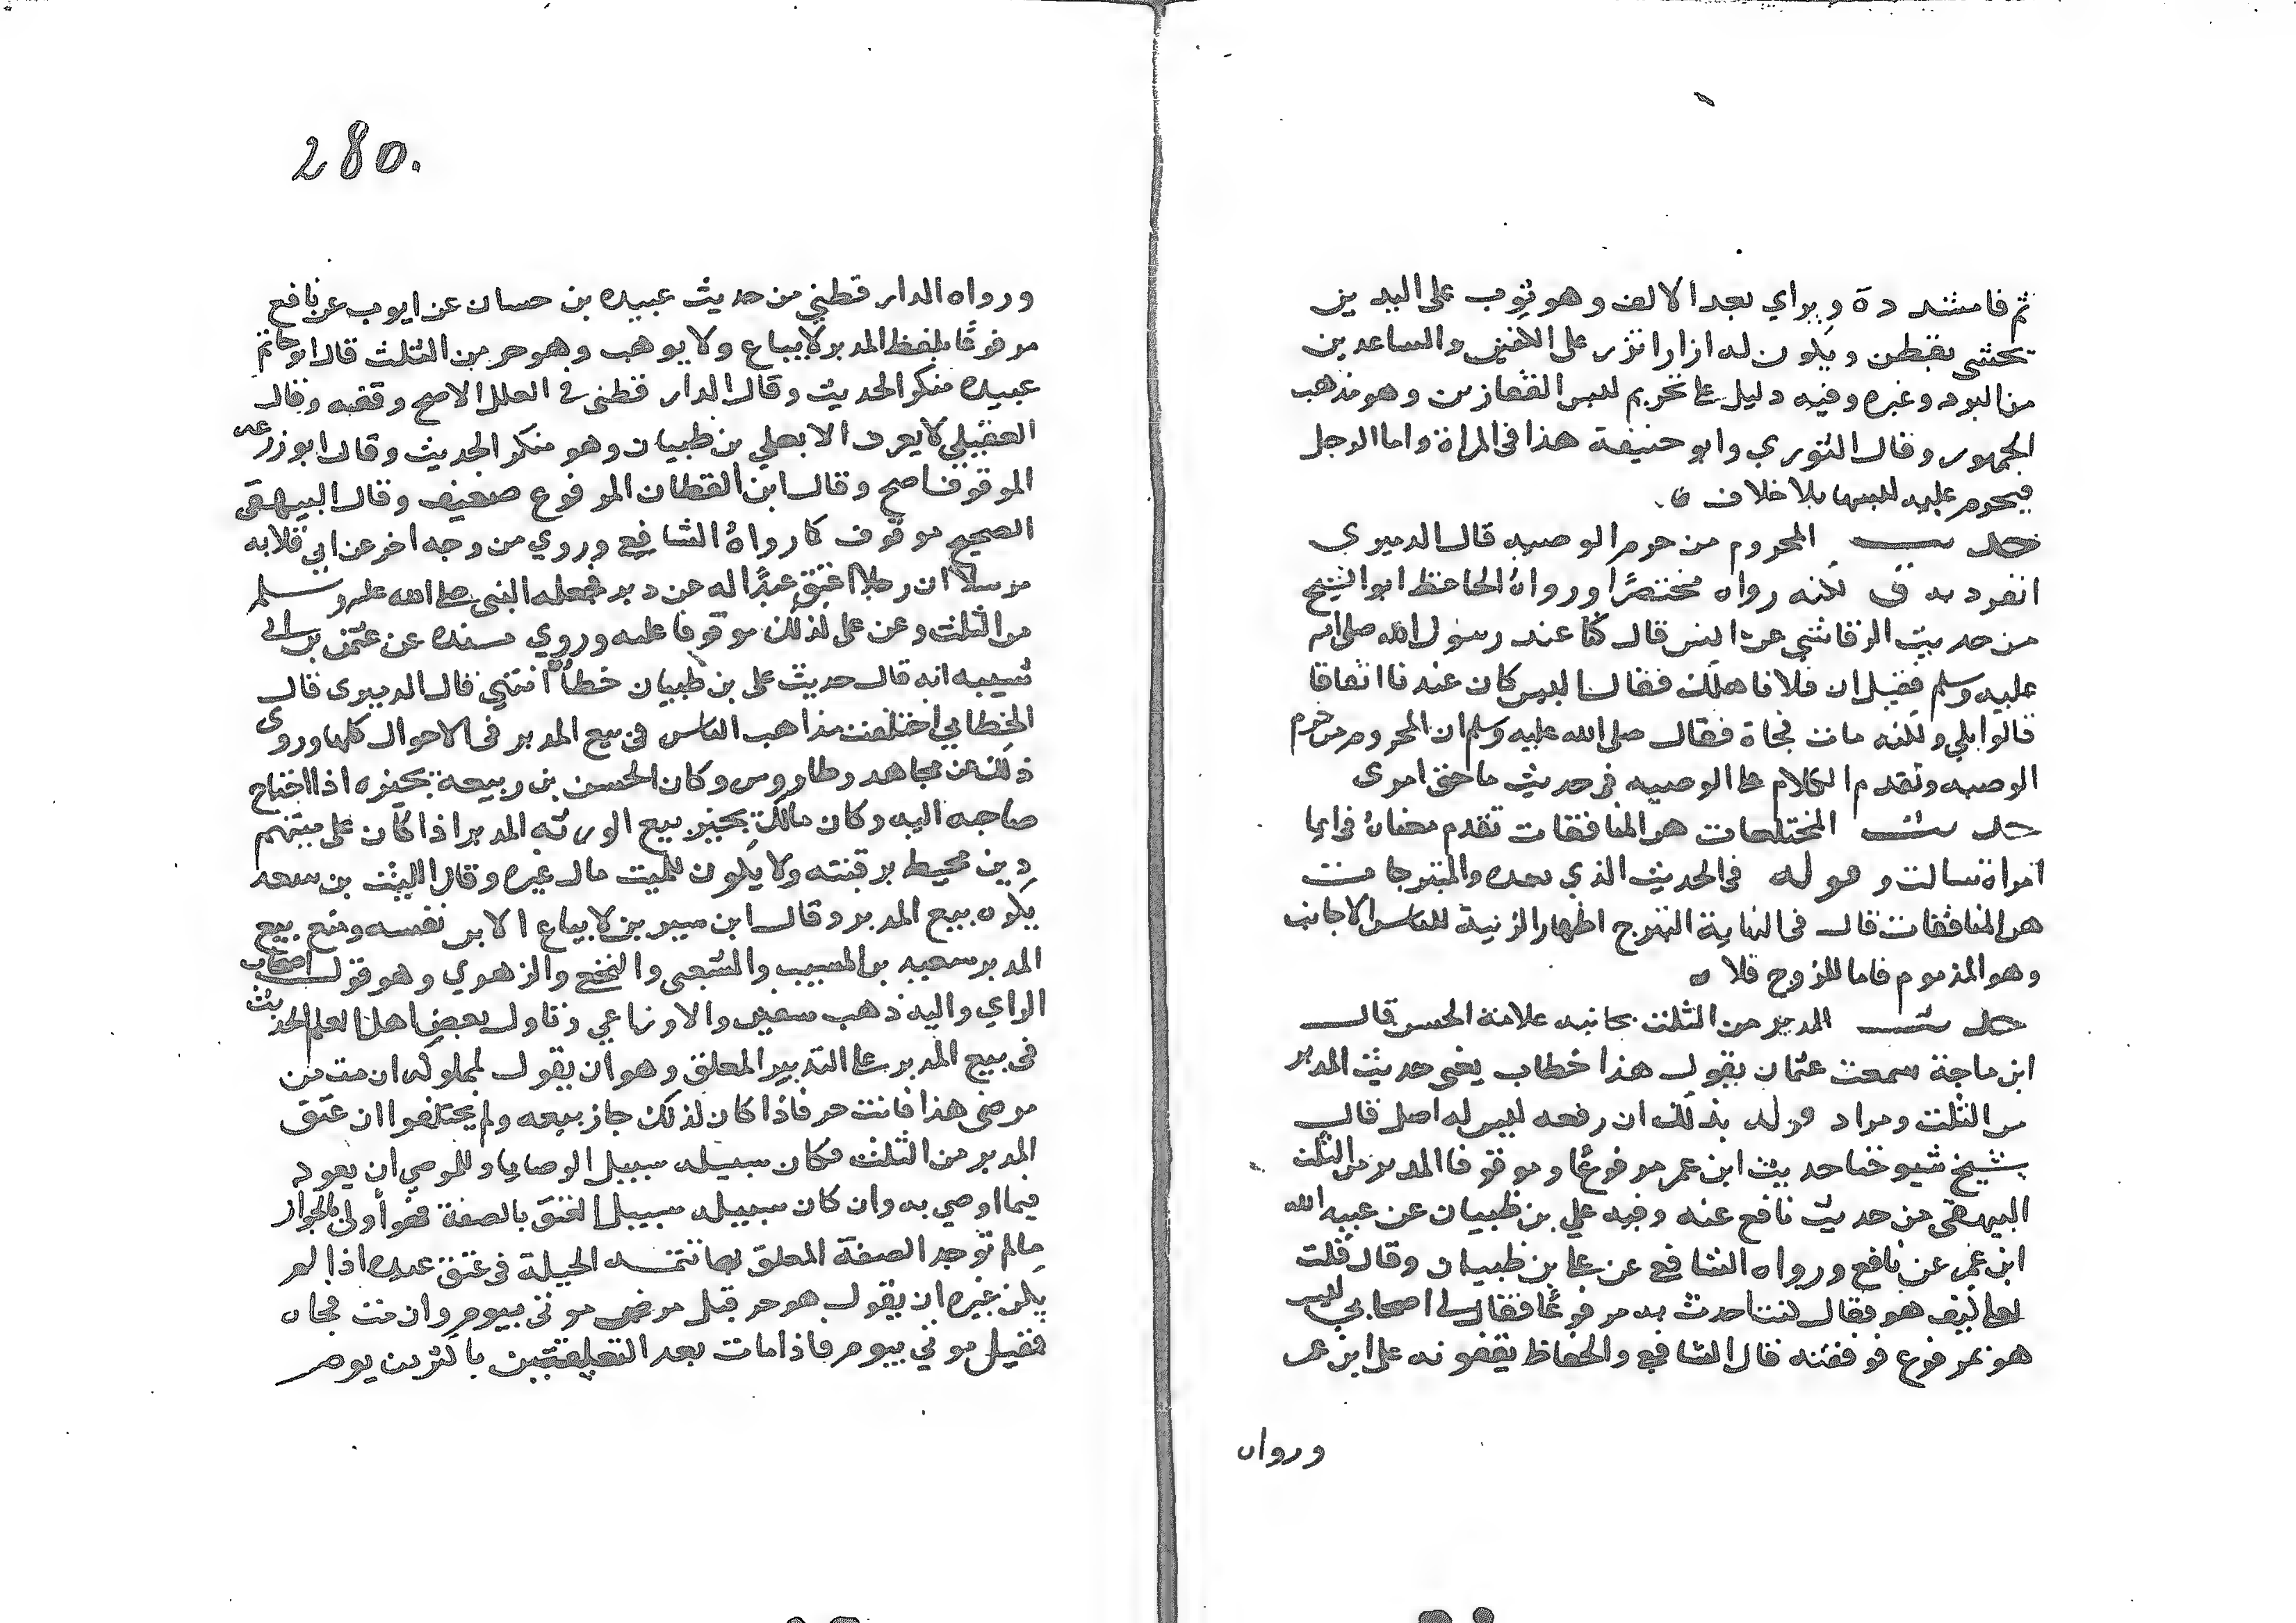 ثم فا مشدده وبراي بعد الالف وهو ثوب على اليدين
تحشى بقطن ويكون له ازرار تزر على الكفين والساعدين
من البرد وغيره وفيه دليل على تحريم لبس القفازين وهو مذهب
الجمهور وقال الثوري وابو حنيفة هذا في المراة واما الرجل
فيحرم عليه لبسها بلا خلاف ه
حديث المحروم من حرم الوصيه قال الدميري
انفرد به ق لكنه رواه مختصرًا ورواهُ الحافظ ابو الشيخ
من حديث الرقاشي عن انس قال كنا عند رسول الله صلى الله
عليه وسلم فقيل ان فلانا هلك فقال اليس كان عندنا انفاقا
قالوا بلي ولكنه مات فجاة فقال صلى الله عليه وسلم ان المحروم من حرم
الوصيه وتقدم الكلام على الوصيه في حديث ما حق امرى
حديث المختلعات هن المنافقات تقدم معناهُ في ايما
امراة سالت وقوله في الحديث الذي بعده والمتبرجات
هن المنافقات قال في النهاية التبرج اظهار الزينة للناس الاجانب
وهو المذموم فاما للزوج فلا ه
حديث المدبر من الثلث بجانبه علامة الحسن قال
ابن ماجة سمعت عثمان يقول هذا خطاب يعني حديث المدبر
من الثلث ومراد قوله بذلك ان رفعه ليس له اصل قال
شيخ شيوخنا حديث ابن عمر مرفوعًا وموقوفا المدبر من الثلث
البيهقي من حديث نافع عنه وفيه علي بن ظبيان عن عبيد الله
ابن عمر عن نافع ورواه الشافعي عن علي بن ظبيان وقال قلت
لعلي كيف هو فقال كنت احدث به مرفوعًا فقال لي اصحابي ليس
هو بمرفوع فوقفته قال الشافعي والحفاظ يقفونه على ابن عمر
ورواه
280.
ورواه الدارقطني من حديث عبيده بن حسان عن ايوب عن نافع
مرفوعًا بلفظ المدبر لا يباع ولا يوهب وهو حر من الثلث قال ابو حاتم
عبيده منكر الحديث وقال الدارقطني في العلل الاصح وقفه وقال
العقيلي لا يعرف الا بعلي بن ظبيان وهو منكر الحديث وقال ابو زرعه
الموقوف اصح وقال ابن القطان المرفوع ضعيف وقال البيهقى
الصحيح موقوف كما رواهُ الشافعي وروي من وجه اخر عن ابي قلابه
مرسلا ان رجلا اعتق عبدًا له عن دبر فجعله النبي صلى الله عليه وسلم
من الثلث وعن على كذلك موقوفا عليه وروي بسنده عن عثمن بن ابي
شيبه انه قال حديث على بن ظبيان خطأ انتهي قال الدميرى قال
الخطابي اختلفت مذاهب الناس في بيع المدبر في الاحوال كلها وروى
ذلك عن مجاهد وطاروس وكان الحسن بن ربيعة يجيزه اذا احتاج
صاحبه اليه وكان مالك يجيز بيع الورثه المدبر اذا كان على ميتهم
دين محيط برقبته ولا يكون للميت مال غيره وقال الليث بن سعد
يكره بيع المدبر وقال ابن سيرين لا يباع الا بر نفسه ومنع بيع
المدبر سعيد بن المسيب والشعبى والنخعي والزهري وهو قول اصحاب
الراي واليه ذهب سفين والاوزاعي وتاول بعض اهل العلم الحديث
في بيع المدبر على التدبير المعلق وهو ان يقول لمملوكه ان مت من
مرضى هذا فانت حر فاذا كان كذلك جاز بيعه ولم يختلفوا ان عتق
المدبر من الثلث فكان سبيله سبيل الوصايا وللموصي ان يعود
فيما اوصي به وان كان سبيله سبيل العتق بالصفة فهو أولى بالجواز
مالم توجد الصفة المعلق بها تتمـه الحيلة في عتق عبده اذا لم
يكن غيره ان يقول هو حر قبل مرض موتى بيوم وان مت فجاه
فقبل موتي بيوم فاذا مات بعد التعليقتين باكثر من يوم